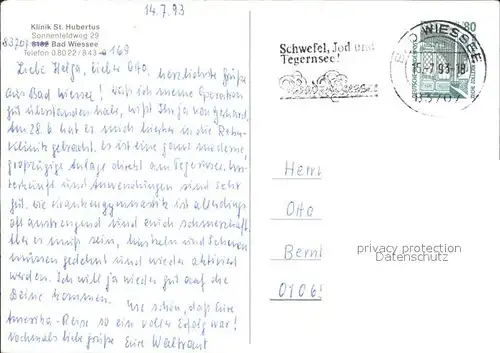 14.7.93
Klinik St. Hubertus
Sonnenfeldweg 29
83707 8182 Bad Wiessee
Telefon 08022/843-0 169
Liebe Helga, lieber Otto, herzlichste Grüße
aus Bad Wiessee! Daß ich meine Operation
gut überstanden hab, wißt Ihr ja von Gerhard,
am 28.6. hat er mich hierher in die Reha-
klinik gebracht. Es ist eine ganz moderne,
großzügige Anlage direkt am Tegernsee. Un-
terkunft und Anwendungen sind sehr
gut, die Krankengymnastik ist allerdings
oft anstrengend und auch schmerzhaft,
aber es muß sein, Muskeln und Sehnen
müssen gedehnt und wieder aktiviert
werden. Ich will ja wieder gut auf die
Beine kommen.
Wie schön, daß Eure
Amerika-Reise so ein voller Erfolg war!
Nochmals liebe Grüße Eure Waltraut
Schwefel, Jod und
Tegernsee!
BAD WIESSEE
15.-7.93-18
83707
80
DEUTSCHE BUNDESPOST
Herrn
Otto
Bernl
0106
privacy protection
Datenschutz